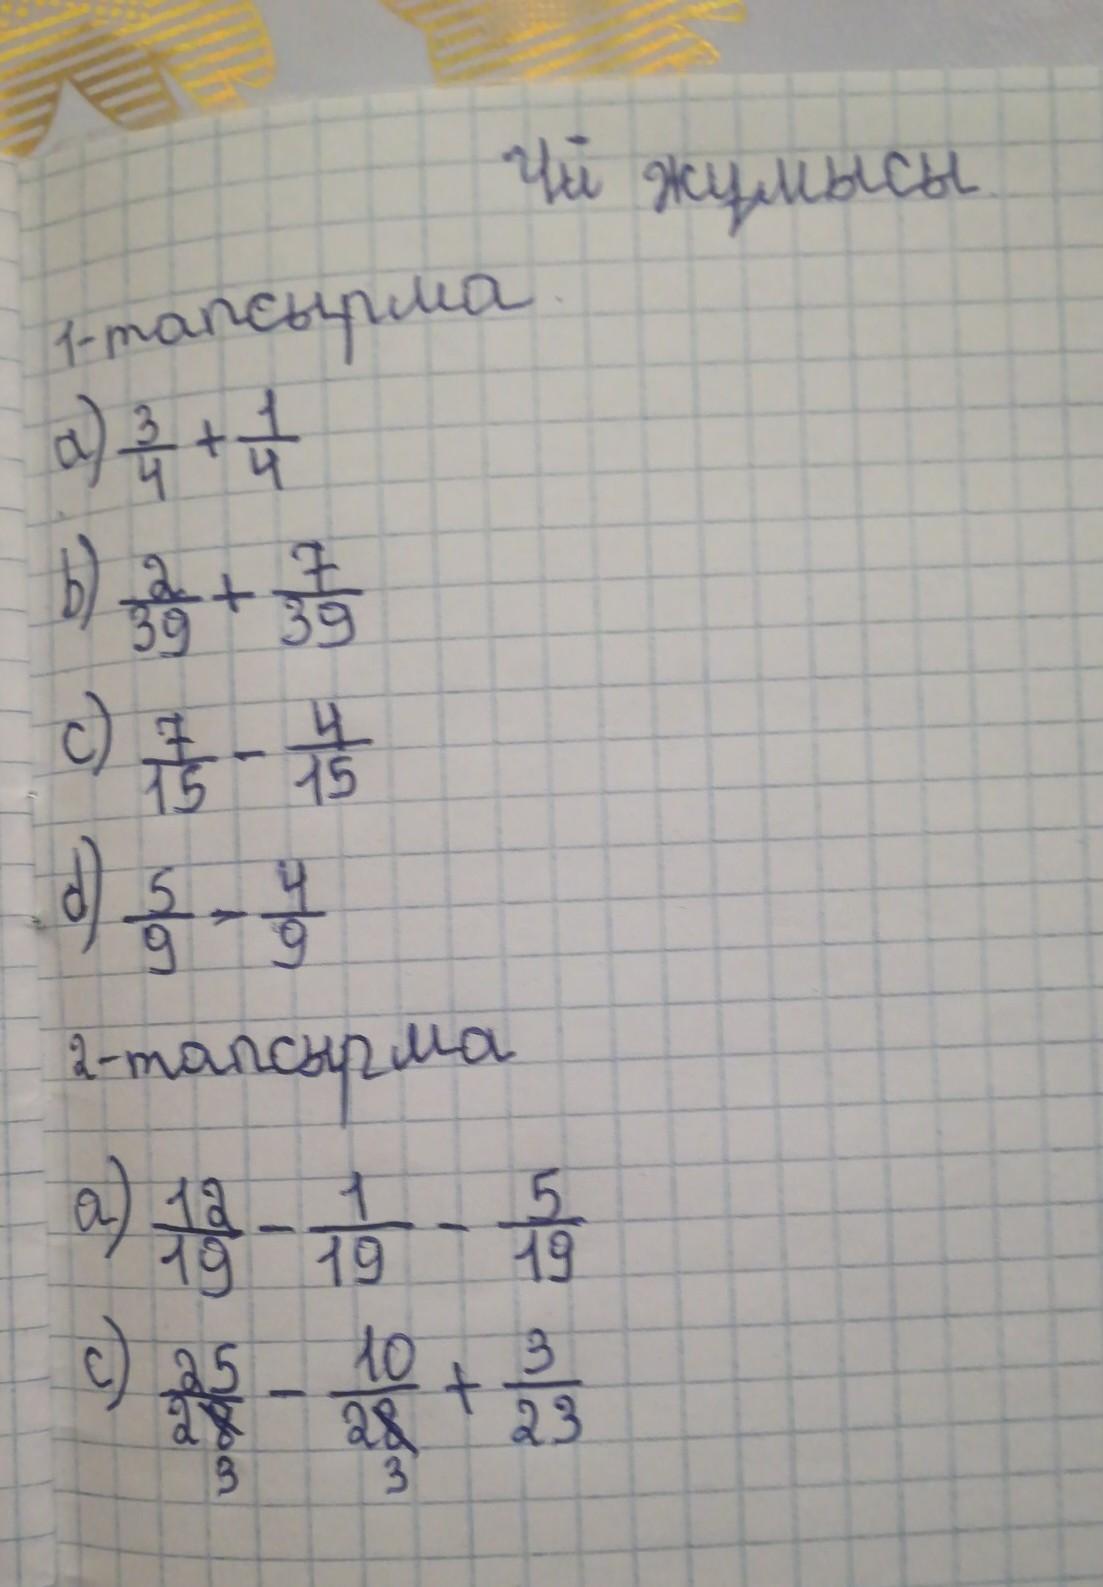 Үй жумысы.
1-тапсырма.
a) 3/4 + 1/4
b) 2/39 + 7/39
c) 7/15 - 4/15
d) 5/9 - 4/9
2-тапсырма
a) 12/19 - 1/19 - 5/19
c) 25/23 - 10/23 + 3/23